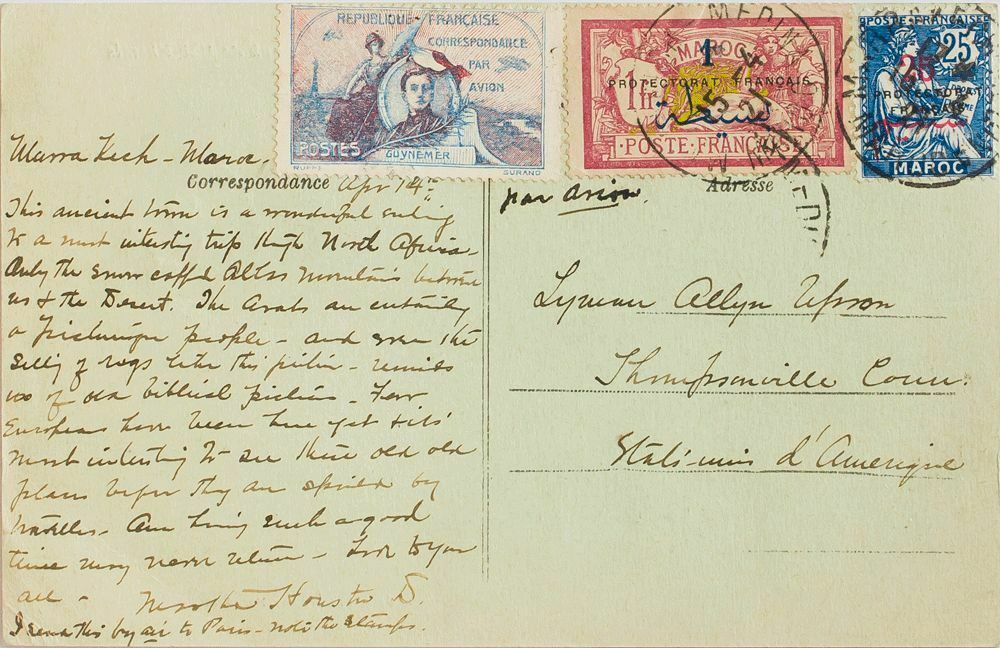 REPUBLIQUE FRANÇAISE
CORRESPONDANCE
PAR
AVION
POSTES
GUYNEMER
RUFFE
SURAND
MAROC
1
PROTECTORAT FRANÇAIS
1fr
POSTE FRANÇAISE
POSTE FRANÇAISE
25
25
PROTECTORAT
FRANÇAIS
MAROC
MEDINA
Marra Kech - Maroc.
Correspondance Apr 14th
Adresse
par avion.
This ancient town is a wonderful ending
to a most intersting trip thrgh North Africa -
Only the snow capped Atlas Mountains between
us & the Desert. The Arabs are certainly
a picturesque people - and even the
selling of rugs like this picture - reminds
us of old biblical pictures - Few
Europeans have been here yet & its
most interesting to see these old old
places before they are spoiled by
travellers. Am having such a good
time may never return - Love to you
all -
Houston D.
I send this by air to Paris - note the stamps.
Lyman Allyn Upson
Thompsonville Conn.
Etats-unis d'Amerique